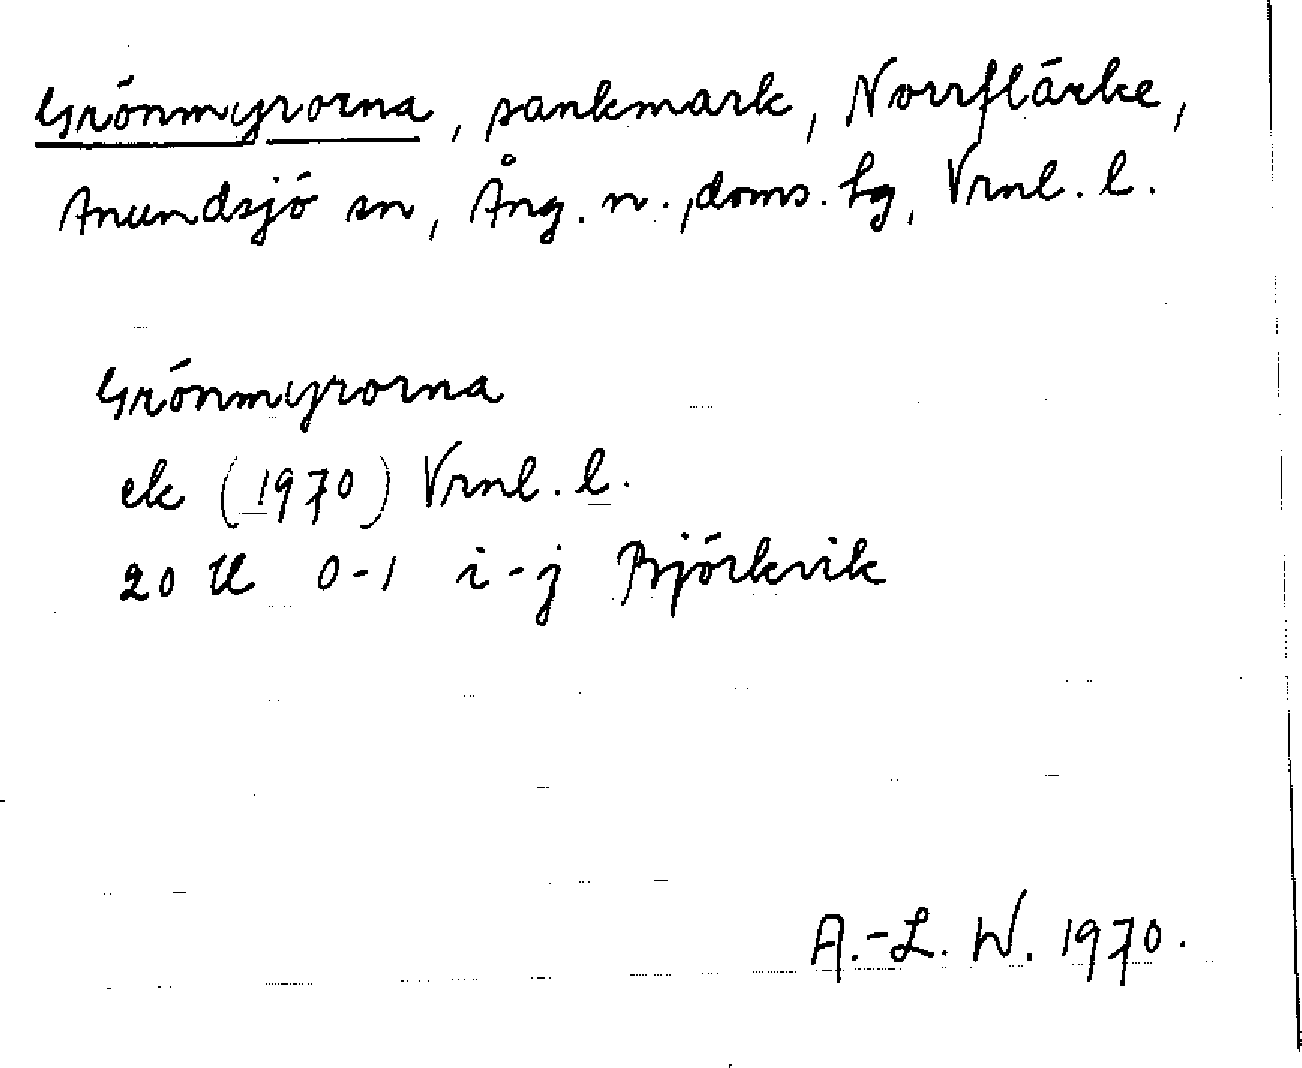 Grönmyrorna, sankmark, Norrflärke,
Anundsjö sn, Ång. n., doms. hg, Vrnl. l.
Grönmyrorna
ek (1970) Vrnl. l.
20 H 0-1 i-j Björkvik
A.-L. W. 1970.